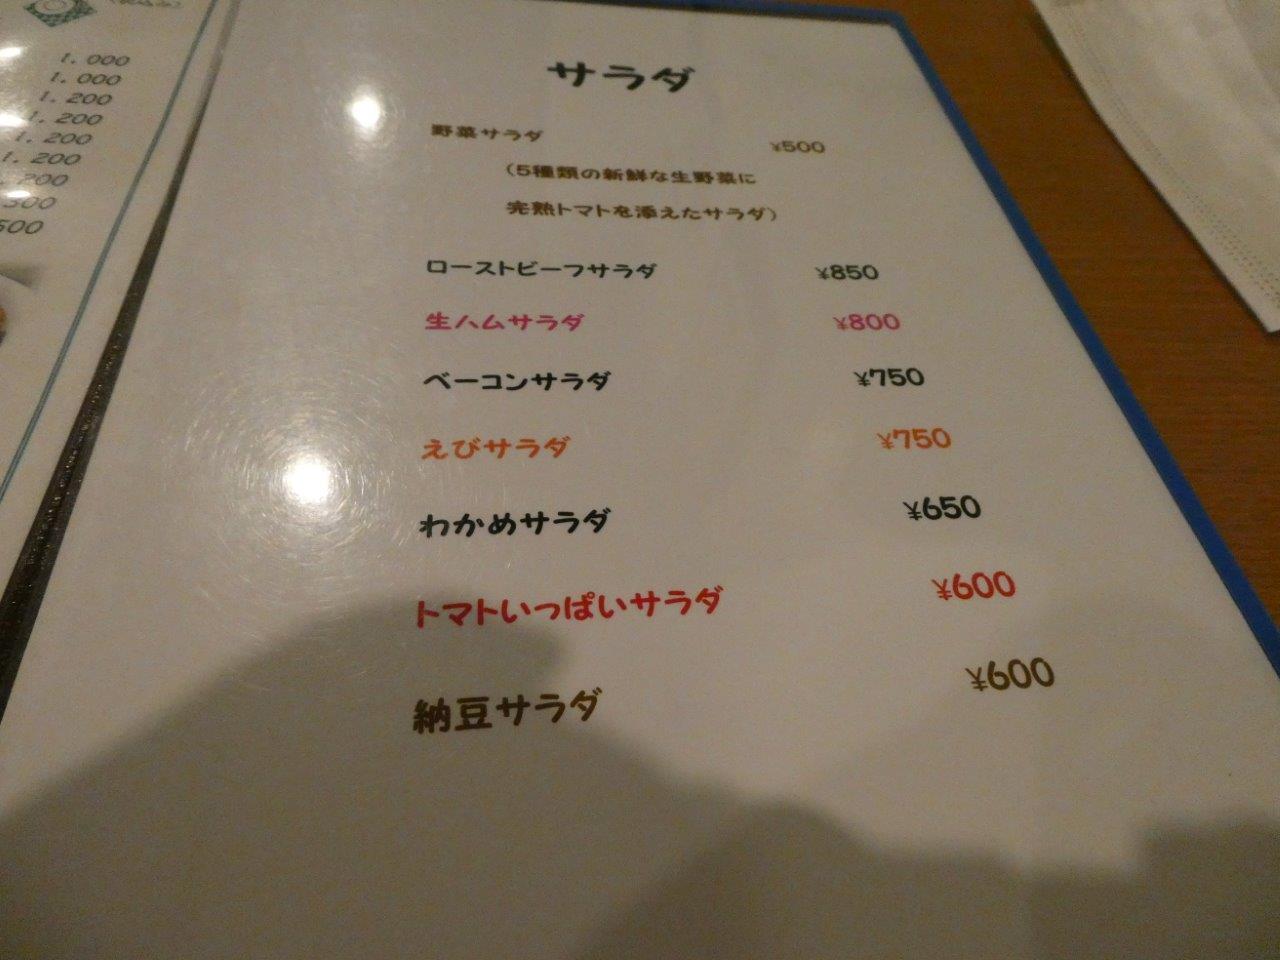 1,000
1,000
1,200
1,200
1,200
1,200
サラダ
野菜サラダ ¥500
(5種類の新鮮な生野菜に
完熟トマトを添えたサラダ)
ローストビーフサラダ ¥850
生ハムサラダ ¥800
ベーコンサラダ ¥750
えびサラダ ¥750
わかめサラダ ¥650
トマトいっぱいサラダ ¥600
納豆サラダ ¥600